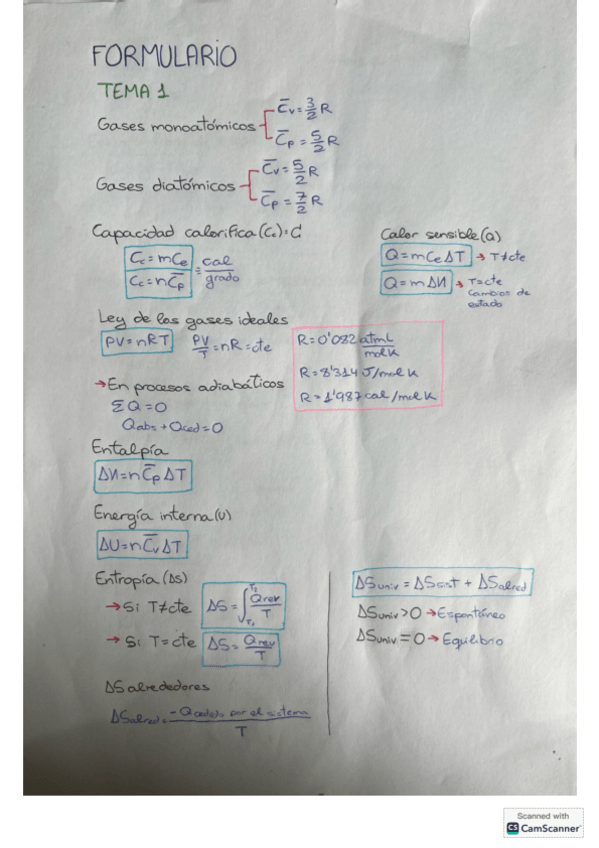 FORMULARIO
TEMA 1
Gases monoatómicos
C̅v = 3/2 R
C̅p = 5/2 R
Gases diatómicos
C̅v = 5/2 R
C̅p = 7/2 R
Capacidad calorifica (Cc): C
Cc = mCe
Cc = nC̅p
= cal/grado
Calor sensible (Q)
Q = mCeΔT → T≠cte
Q = mΔH → T=cte
Cambios de
estado
Ley de los gases ideales
PV = nRT PV/T = nR = cte
R = 0'082 atmL/molK
R = 8'314 J/molK
R = 1'987 cal/molK
→ En procesos adiabáticos
ΣQ = 0
Qabs + Qced = 0
Entalpía
ΔH = nC̅pΔT
Energía interna (U)
ΔU = nC̅vΔT
Entropía (ΔS)
→ Si T≠cte ΔS = ∫T₁T₂ Qrev/T
→ Si T = cte ΔS = Qrev/T
ΔS alrededores
ΔSalred = -Qcedido por el sistema/T
ΔSuniv = ΔSsist + ΔSalred
ΔSuniv > 0 → Espontáneo
ΔSuniv = 0 → Equilibrio
Scanned with
CS CamScanner